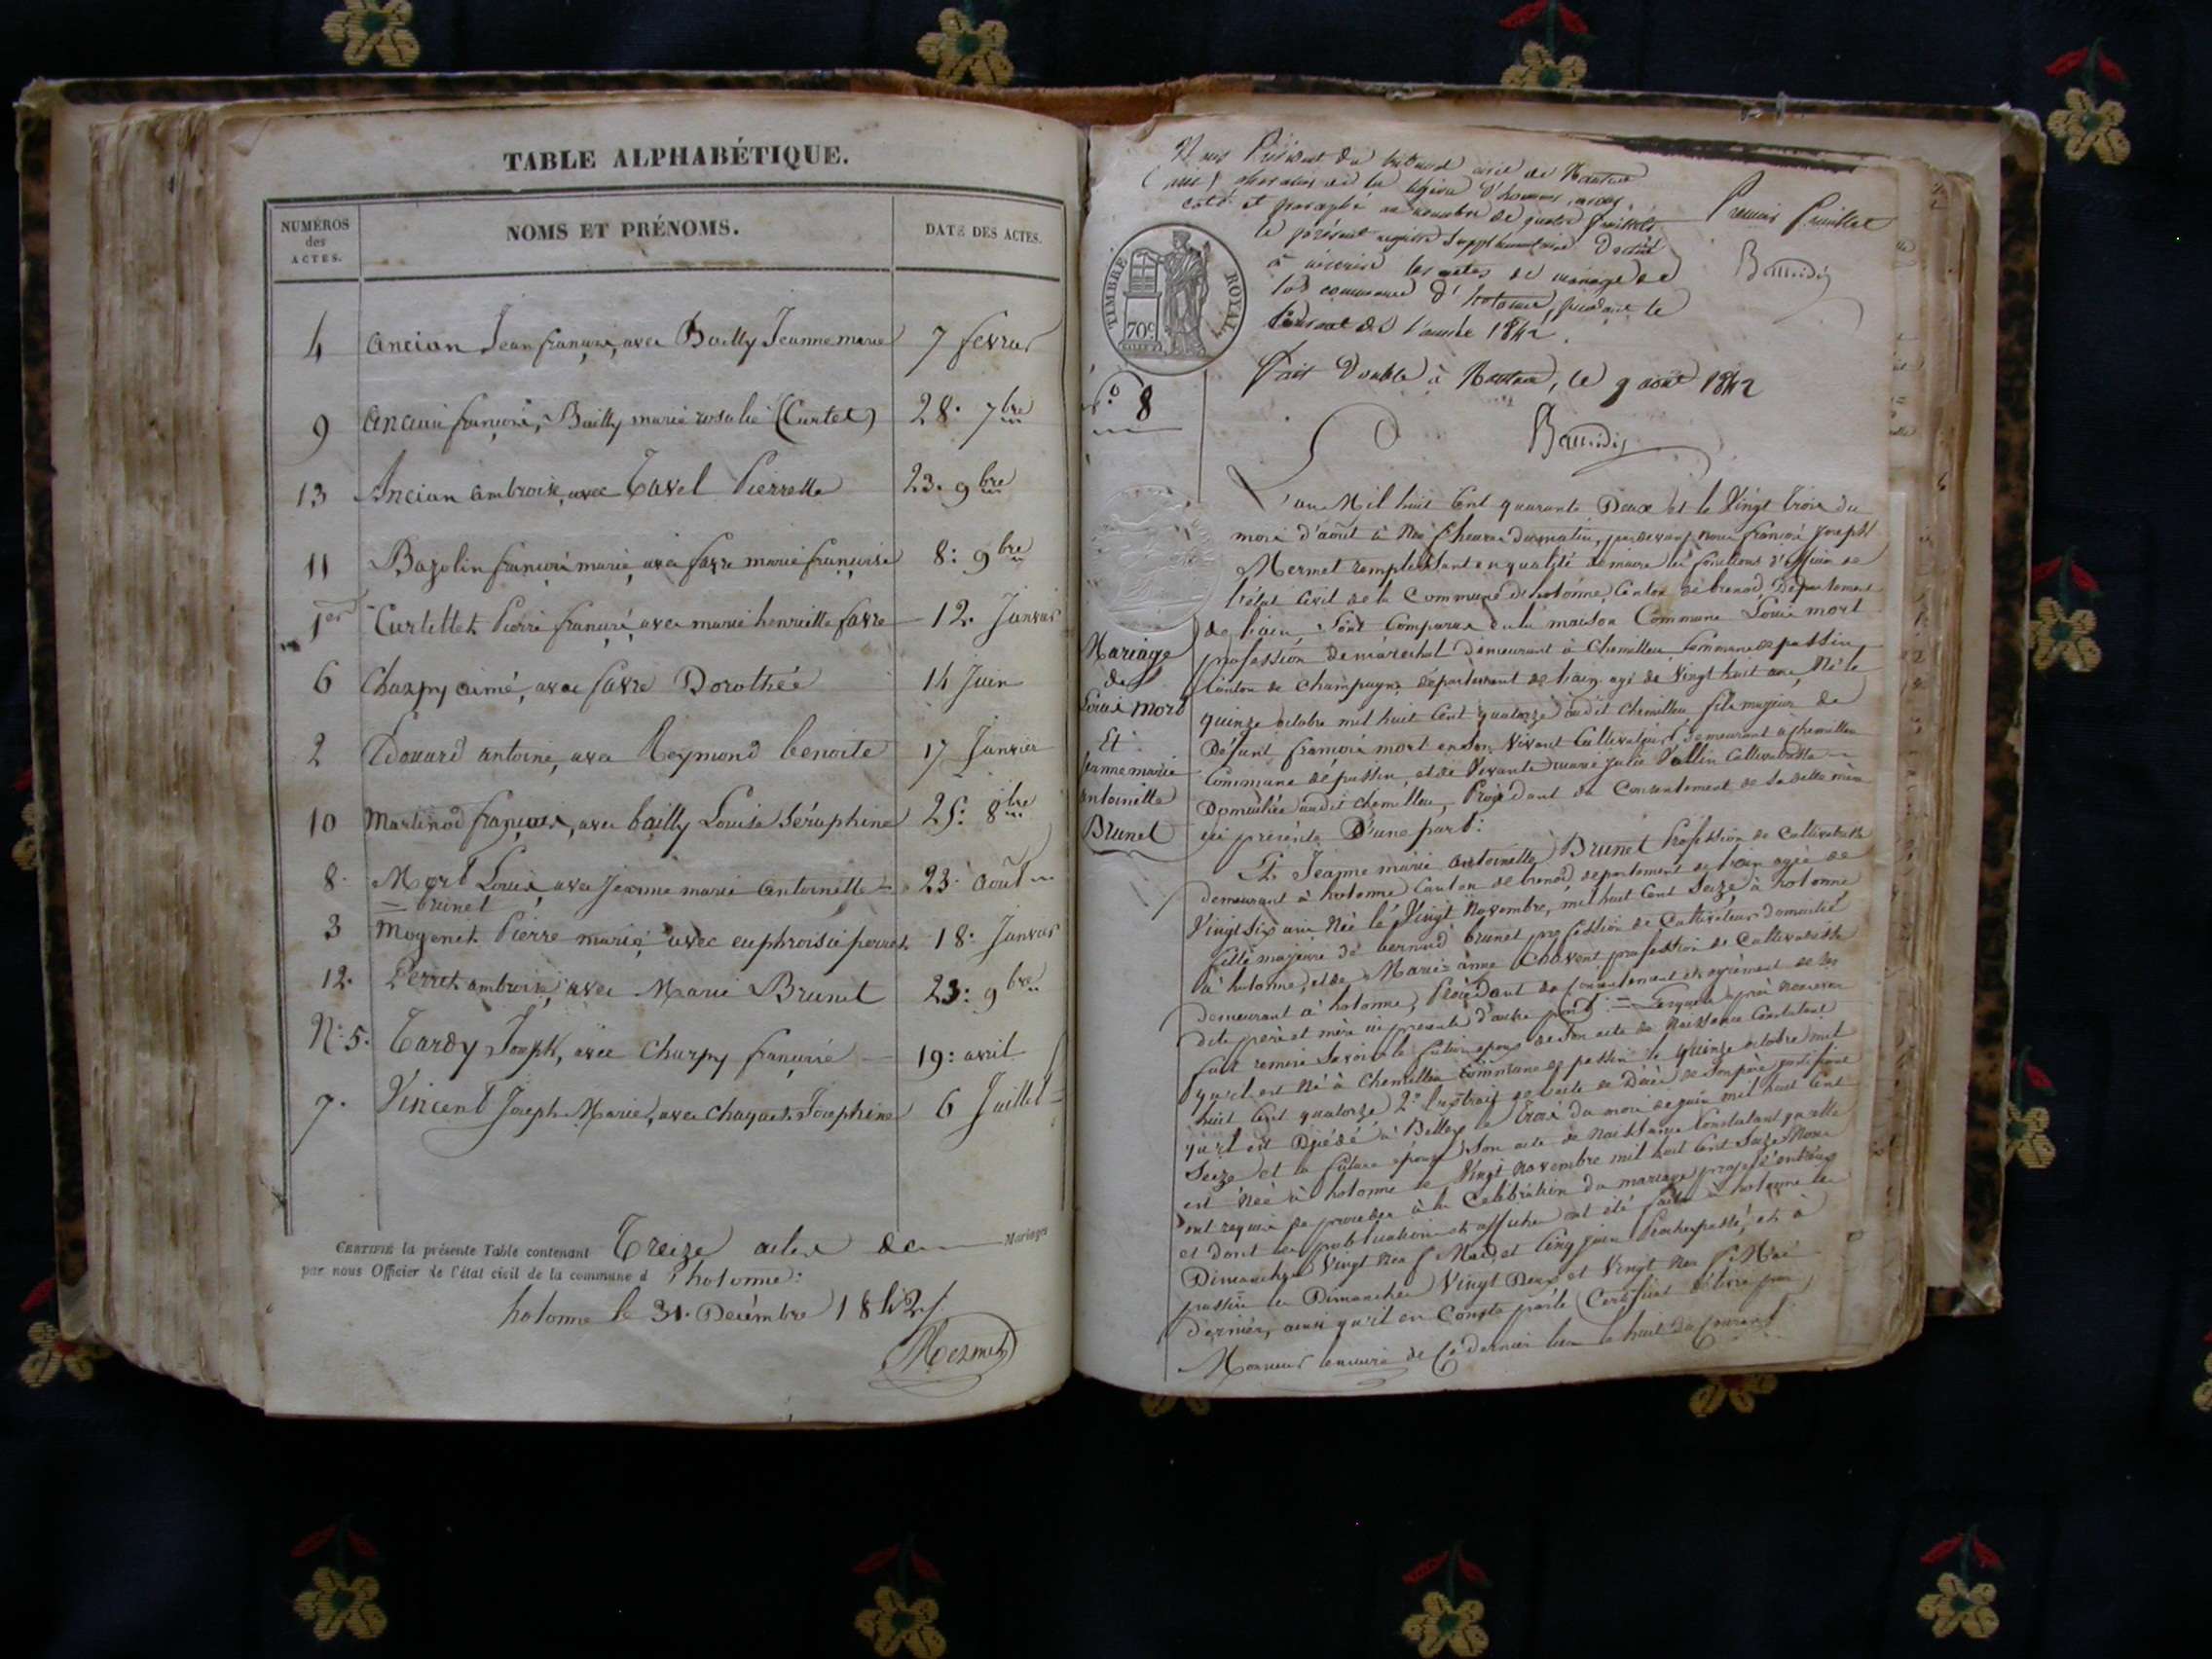 TABLE ALPHABÉTIQUE.
NUMÉROS des ACTES.
NOMS ET PRÉNOMS.
DATE DES ACTES.
4 ancian Jean françois, avec Bailly Jeanne marie 7 fevrier
9 ancian françois, Bailly marie rosalie (Curtet) 28. 7bre
13 Ancian ambroise avec Tavel Pierrette 23. 9bre
11 Bazolin françois marie, avec favre marie françoise 8: 9bre
1er Curtillet Pierre françois, avec marie henriette favre 12. Janvier
6 Charpy aimé, avec favre Dorothée 14 Juin
2 Edouard antoine, avec Reymond benoite 17 Janvier
10 Martinod françois, avec bailly Louise Séraphine 25: 8bre
8. Mort Louis, avec Jeanne marie antoinette = 23. août
= brunet
3 Mogenet Pierre marie, avec euphroisie perret 18. Janvier
12. Perret ambroise, avec Marie Brunet 23: 9bre
N° 5. Tardy Joseph, avec Charpy françoise 19: avril
7. Vincent Joseph Marie, avec Chaquet Josephine 6 Juillet
CERTIFIÉ la présente Table contenant Treize actes de Mariages
par nous Officier de l'état civil de la commune d'hotonne:
hotonne le 31. Decémbre 1842/.
Mermet
Nous Président du tribunal civil de Nantua
chevalier de la légion d'honneur, avons
coté et paraphé au nombre de quatre feuillets
le présent registre Supplémentaire Destiné
à inscrire les actes de mariage de
la commune d'hotonne, pendant le
courant de l'année 1842.
Fait Double à Nantua, le 9 août 1842
Premier feuillet
TIMBRE ROYAL
70c
N° 8
Mariage
de
Louis Mort
Et
Jeanne marie
antoinette
Brunet
L'an Mil huit Cent quarante Deux et le Vingt trois du
mois d'août à Neuf heures du matin, par devant nous françois joseph
Mermet remplissant en qualité de maire les fonctions d'officier de
l'état Civil de la Commune d'hotonne, Canton de brenod, Département
de l'ain, Sont Comparus en la maison Commune Louis mort
profession de maréchal demeurant à Chemillieu Commune de passin
Canton de Champagne département de l'ain agé de Vingt huit ans, Né le
quinze octobre mil huit Cent quatorze audit Chemillieu fils majeur de
Défunt françois mort en son Vivant Cultivateur demeurant à chemillieu
Commune de passin, et de Vivante marie Julie Vallin Cultivatrice
Domiciliée audit Chemillieu, Procédant du Consentement de sa dite mère
ici présente D'une part:
Et Jeanne marie antoinette Brunet Profession de Cultivatrice
demeurant à hotonne Canton de brenod, département de l'ain agée de
Vingt six ans Née le Vingt Novembre, mil huit Cent Seize à hotonne
fille majeure de bernard brunet profession de Cultivateur domicilié
à hotonne, et de Marie-anne profession de Cultivatrice
demeurant à hotonne, Procédant du Consentement et agrément de ses
dits père et mère ici presents d'autre part: = Lesquels après nous avoir
fait remise Savoir le futur epoux de Son acte de Naissance Constatant
qu'il est Né à Chemillieu Commune de passin le quinze octobre mil
huit Cent quatorze 2° L'extrait de l'acte de Décès de Son père justifiant
qu'il est Décédé à Belley le trois du mois de juin mil huit Cent
Seize et la future épouse Son acte de Naissance Constatant qu'elle
est Née à hotonne le Vingt Novembre mil huit Cent Seize Nous
ont requis de proceder à la Celebration du mariage projeté entr'eux
et dont les publications et affiches ont été faites à hotonne les
Dimanches Vingt Neuf Mai, et Cinq juin Prochepassé, et à
passin les Dimanches Vingt Deux et Vingt Neuf Mai
dernier, ainsi qu'il en Conste par le Certificat délivré par
Monsieur le maire de Ce dernier lieu le huit du Courant